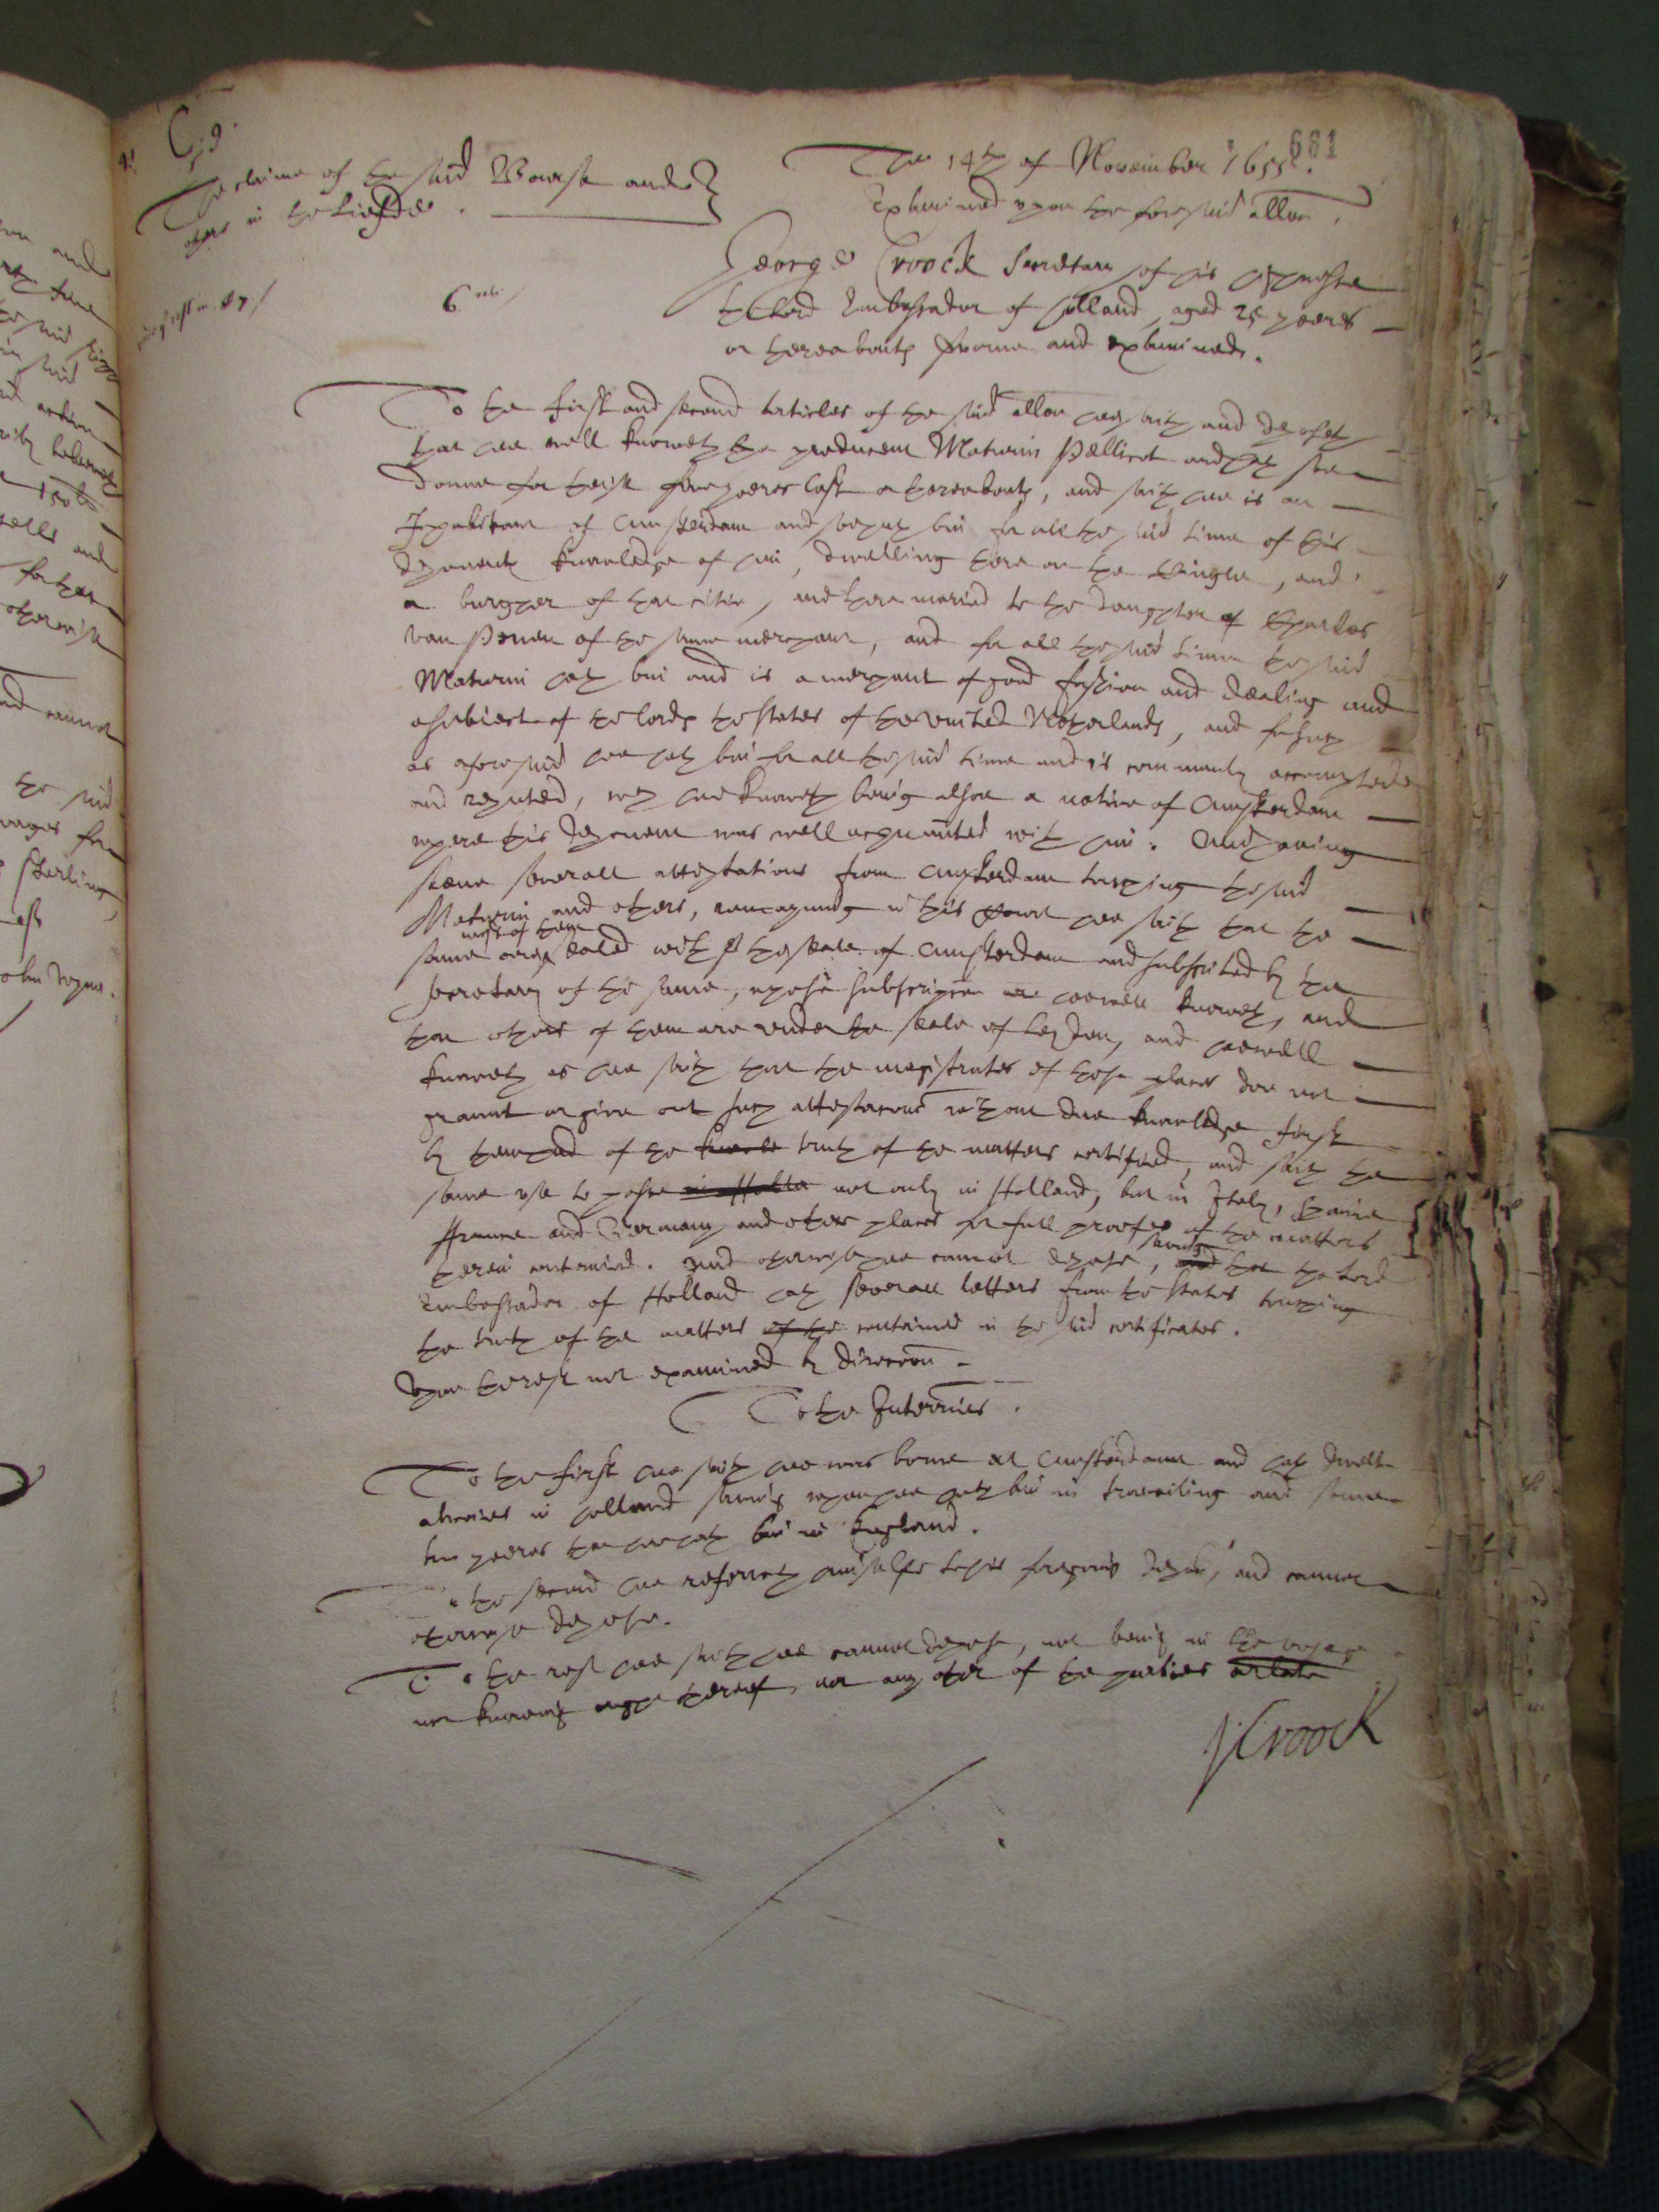 681
The 14th of November 1655.
Examined upon the foresaid allon.
The claime of the said Bowse and
others in the Liefde.
6us
George Croock Secretary of his
the Lord Embassador of Holland, aged 25 yeeres
or thereabouts sworne and examined.
To the first and second articles of the said allon hee saith and deposeth
that hee well knoweth the producent Maturin Pellicot and hath soe
donne for theise five yeeres last or thereabouts, and saith hee is an
Inhabitant of Amsterdam and soe hath bin for all the said time of this
deponents knowledge of him, dwelling there on the Cingle, and
a burgher of that citie, and there maried to the daughter of Charles
van Penen of the same merchant, and for all the said time the said
Maturin hath bin and is a merchant of good fashion and dealing and
a subiect of the lords the States of the united Netherlands, and for such
as aforesaid hee hath bin for all the said time and is commonly accompted
and reputed, which hee knoweth being alsoe a native of Amsterdam
where this deponent was well acquainted with him. And having
seene severall attestations from Amsterdam touching the said
Maturin and others, remayning in this Court hee saith that the
most of them
same are sealed with the seale of Amsterdam and subscribed by the
secretary of the same, whose subscription hee well knoweth, and
that others of them are under the seale of Leyden, and hee well
knoweth as hee saith that the magistrates of those places doe not
graunt or give out such attestacons without due knowledge first
by them had of the truth of the matters certified, and saith the
same use to passe in Holla not only in Holland, but in Italy, Spaine
ffrance and Germany and other places for full proofes of the matters
therein contained. And otherwise hee cannot depose, saving that the Lord
Embassador of Holland hath severall letters from the States touching
the truth of the matters of the contained in the said certificates.
Upon the rest not examined by direccon
To the Interries.
To the first hee saith hee was borne at Amsterdam and hath dwelt
alwaies in Holland saving when hee hath bin in travailing and some
two yeeres that hee hath bin in England.
To the second hee referreth himselfe to his foregoing depon, and cannot
otherwise depose.
To the rest hee saith hee cannot depose, not being in the voyage
nor knowing ought thereof, nor any other of the parties
J Croock